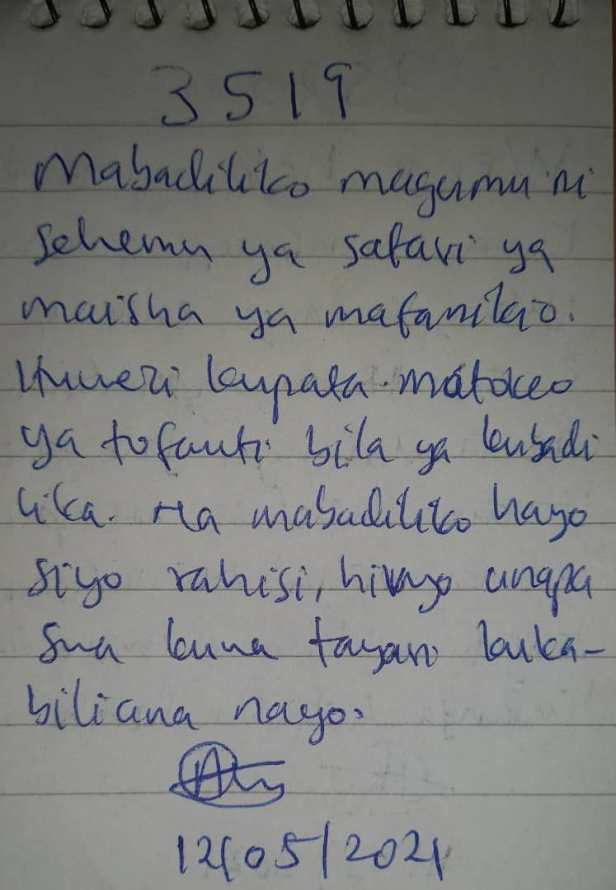 3519
Mabadiliko magumu ni
sehemu ya safari ya
maisha ya mafanikio.
Huwezi kupata matokeo
ya tofauti bila ya kubadi
lika. Na mabadiliko hayo
siyo rahisi, hivyo unapa
swa kuwa tayari kuka-
biliana nayo.
12/05/2021